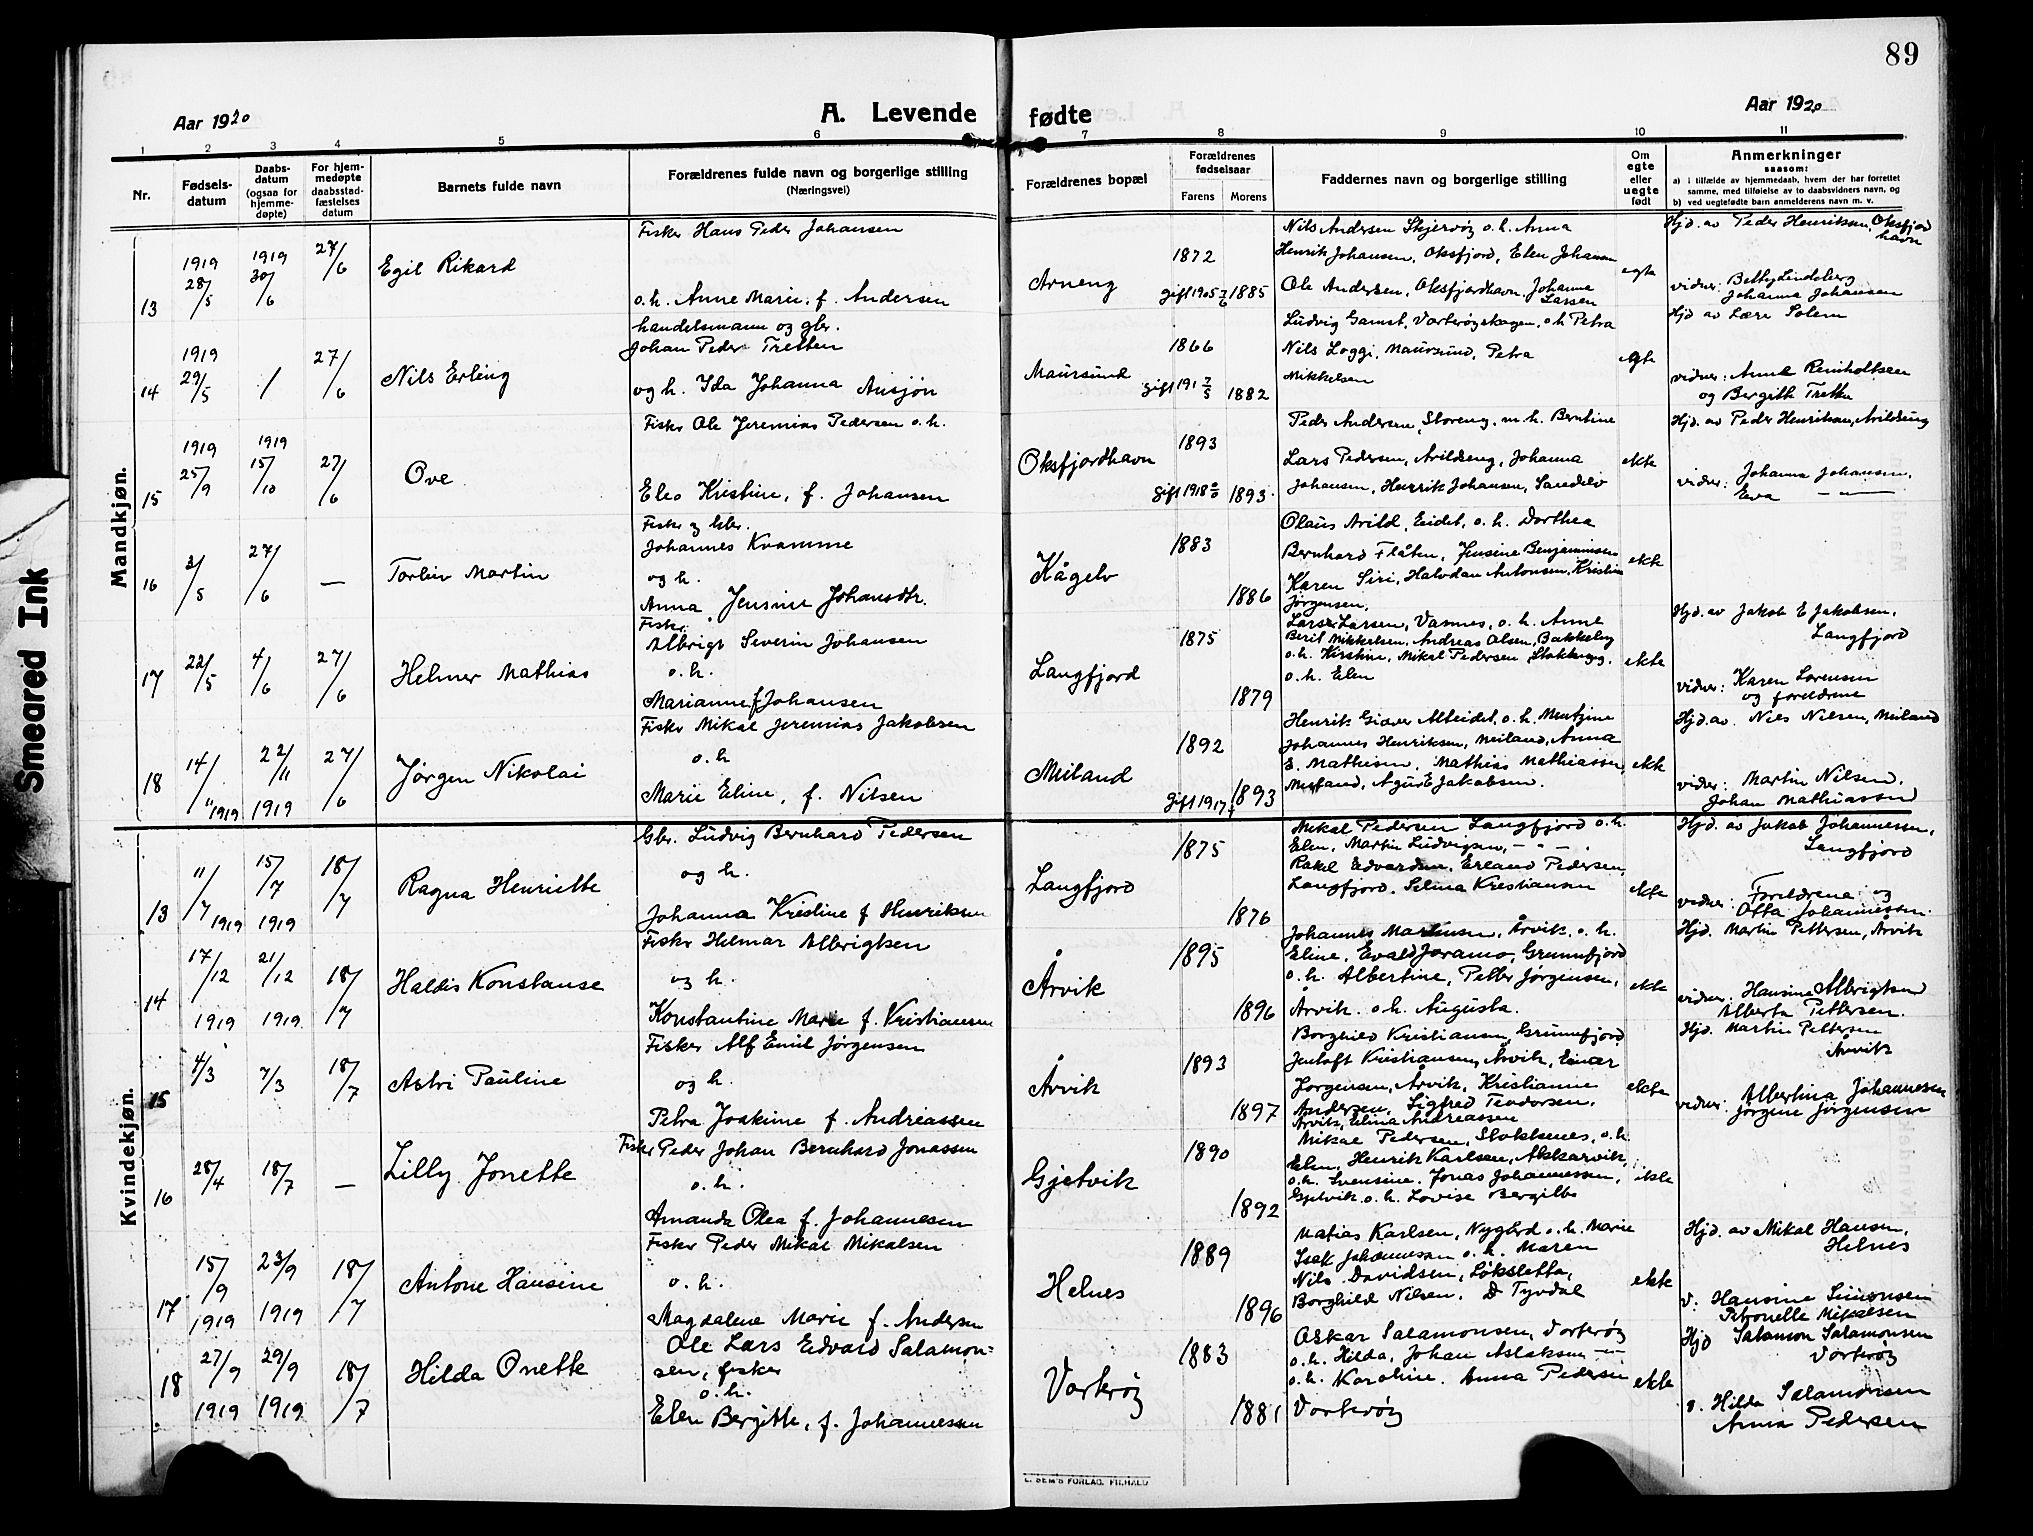 89
Aar 1920
A. Levende fødte
Aar 1920
1 2 3 4 5 6 7 8 9 10 11
Nr.
Fødsels-
datum
Daabs-
datum
(ogsaa for
hjemme-
døpte)
For hjem-
medøpte
daabsstad-
fæstelses
datum
Barnets fulde navn
Forældrenes fulde navn og borgerlige stilling
(Næringsvei)
Forældrenes bopæl
Forældrenes
fødselsaar
Farens Morens
Faddernes navn og borgerlige stilling
Om
egte
eller
uegte
født
Anmerkninger
saasom:
a) i tilfælde av hjemmedaab, hvem der har forrettet
samme, med tilføielse av to daabsvidners navn, og
b) ved uegtefødte barn anmelderens navn m. v.
Smeared Ink
Mandkjøn.
13
1919
28/5
1919
30/6
27/6
Egil Rikard
Fisker Hans Peder Johansen
o.h. Anne Marie, f. Andersen
Arneng
1872
gift 1905 1885
Nils Andersen Skjervøy o.h. Anna
Henrik Johansen, Oksfjord, Elen Johansen
Ole Andersen, Oksfjordhavn, Johanna
Larsen
egte
Hjd. av Peder Henriksen, Oksfjord
havn
vidner: Betty Lindeberg
Johanna Johansen
14
1919
29/5
/
27/6
Nils Erling
handelsmann og gbr.
Johan Peder Tretten
og h. Ida Johanna Ansjøn
Maursund
1866
gift 191 1882
Ludvig Gamst, Vorterøyskagen, o.h. Petra
Nils Loggi, Maursund, Petra
Mikkelsen
egte
Hjd av Lære Solem
vidner: Anna Reinholtsen
og Bergith Tretten
15
1919
25/9
1919
15/10
27/6
Ove
Fisker Ole Jeremias Pedersen o.h.
Eleo Kristine, f. Johansen
Oksfjordhavn
1893
gift 1918 1893
Peder Andersen, Storeng, m.h. Berntine
Lars Pedersen, Arildseng, Johanna
Johansen, Henrik Johansen, Sandelv
ekte
Hjd. av Peder Henriksen, Arildseng
vidner: Johanna Johansen,
Eva — " —
16
3/5
27/6
—
Torleiv Martin
Fisker og gbr.
Johannes Kvamme
og h.
Anna Jensine Johansdtr.
Kågelv
1883
1886
Olaus Arild, Eidet, o.h. Dorthea
Bernhard Flåten, Jensine Benjaminsen
Karen Siri, Halvdan Antonsen, Kristine
Jørgensen,
ekte
17
22/5
4/6
27/6
Helmer Mathias
Fisker
Albrigt Severin Johansen
o.h.
Marianne f. Johansen
Langfjord
1875
1879
Lars Larsen, Vasnes, o.h. Anne
Berit Mikkelsen, Andreas Olsen, Bakkeby
o.h. Kirstine, Mikal Pedersen, Stokkenes,
o.h. Elen
ekte
Hjd. av Jakob E Jakobsen,
Langfjord
vidner: Karen Lorensen
og foreldrene
18
14/11 1919
22/11
1919
27/6
Jørgen Nikolai
Fisker Mikal Jeremias Jakobsen
o.h
Marie Eline, f. Nilsen
Meiland
1892
gift 1917 1893
Henrik Giæver Alteidet, o.h. Mentzine
Johannes Henriksen, Meiland, Anna
E. Mathisen, Mathias Mathiassen,
Meiland, Agus E Jakobsen.
ekte
Hjd. av. Nils Nilsen, Meiland
vidner: Martin Nilsen,
Johan Mathiassen
Kvindekjøn.
13
11/7 1919
15/7
1919
18/7
Ragna Henriette
Gbr. Ludvig Bernhard Pedersen
og h.
Johanna Kristine f. Henriksen
Langfjord
1875
1876
Mikal Pedersen Langfjord o.h.
Elen, Martin Ludvigsen, — " — ,
Rakel Edvardsen, Erland Pedersen,
Langfjord, Selma Kristiansen
ekte
Hjd. av Jakob Johannessen,
Langfjord
vidner: Foreldrene og
Otta Johannessen.
14
17/12
1919
21/12
1919
18/7
Haldis Konstanse
Fisker Helmar Albrigtsen
og h.
Konstantine Marie f. Kristiansen
Årvik
1895
1896
Johannes Martinsen, Årvik, o.h.
Eline, Evald Joramo, Grunnfjord
o.h. Albertine, Petter Jørgensen,
Årvik. o.h. Augusta.
ekte
Hjd. Martin Pettersen, Årvik
vidner: Hansine Albrigtsen
Alberta Pettersen.
15
4/3
7/3
18/7
Astri Pauline
Fisker Alf Emil Jørgensen
og h.
Petra Joakime f. Andreassen
Årvik
1893
1897
Borghild Kristiansen, Grunnfjord
Jentoft Kristiansen, Årvik, Einar
Jørgensen, Årvik, Kristianne
Andersen, Sigfred Teodorsen,
Årvik, Elina Andreassen
ekte
Hjd. Martin Pettersen
Årvik
vidner: Albertina Johannessen
Jørgine Jørgensen
16
28/4
18/7
—
Lilly Jonette
Fisker Peder Johan Bernhard Jonassen
o.h.
Amanda Olea f. Johannesen
Gjetvik
1890
1892
Mikal Pedersen, Stokkenes, o.h.
Elen, Henrik Karlsen, Akkarvik,
o.h. Svensine, Jonas Johannessen,
Gjetvik o.h. Lovise Bergitte
ekte
17
15/9
1919
23/9
1919
18/7
Antone Hansine
Fisker Peder Mikal Mikalsen
o.h.
Magdalene Marie f. Andersen
Helnes
1889
1896
Matias Karlsen, Nygård o.h. Marie
Isak Johannessen o.h. Maren
Nils Davidsen, Løksletta,
Borghild Nilsen, D Tyvdal
ekte
Hjd. av Mikal Hansen,
Helnes
v: Hansine Simonsen
Petronelle Mikalsen
18
27/9
1919
29/9
1919
18/7
Hilda Onette
Ole Lars Edvard Salamon=
sen, fisker
o.h.
Elen Bergitte, f. Johannessen
Vorterøy
1883
1881
Oskar Salamonsen, Vorterøy
o.h. Hilda, Johan Aslaksen — " —
o.h. Karoline. Anna Pedersen
Vorterøy
ekte
Hjd Salamon Salamonsen
Vorterøy
v. Hilda Salamonsen
Anna Pedersen
E. SEM'S FORLAG, FR.HALD